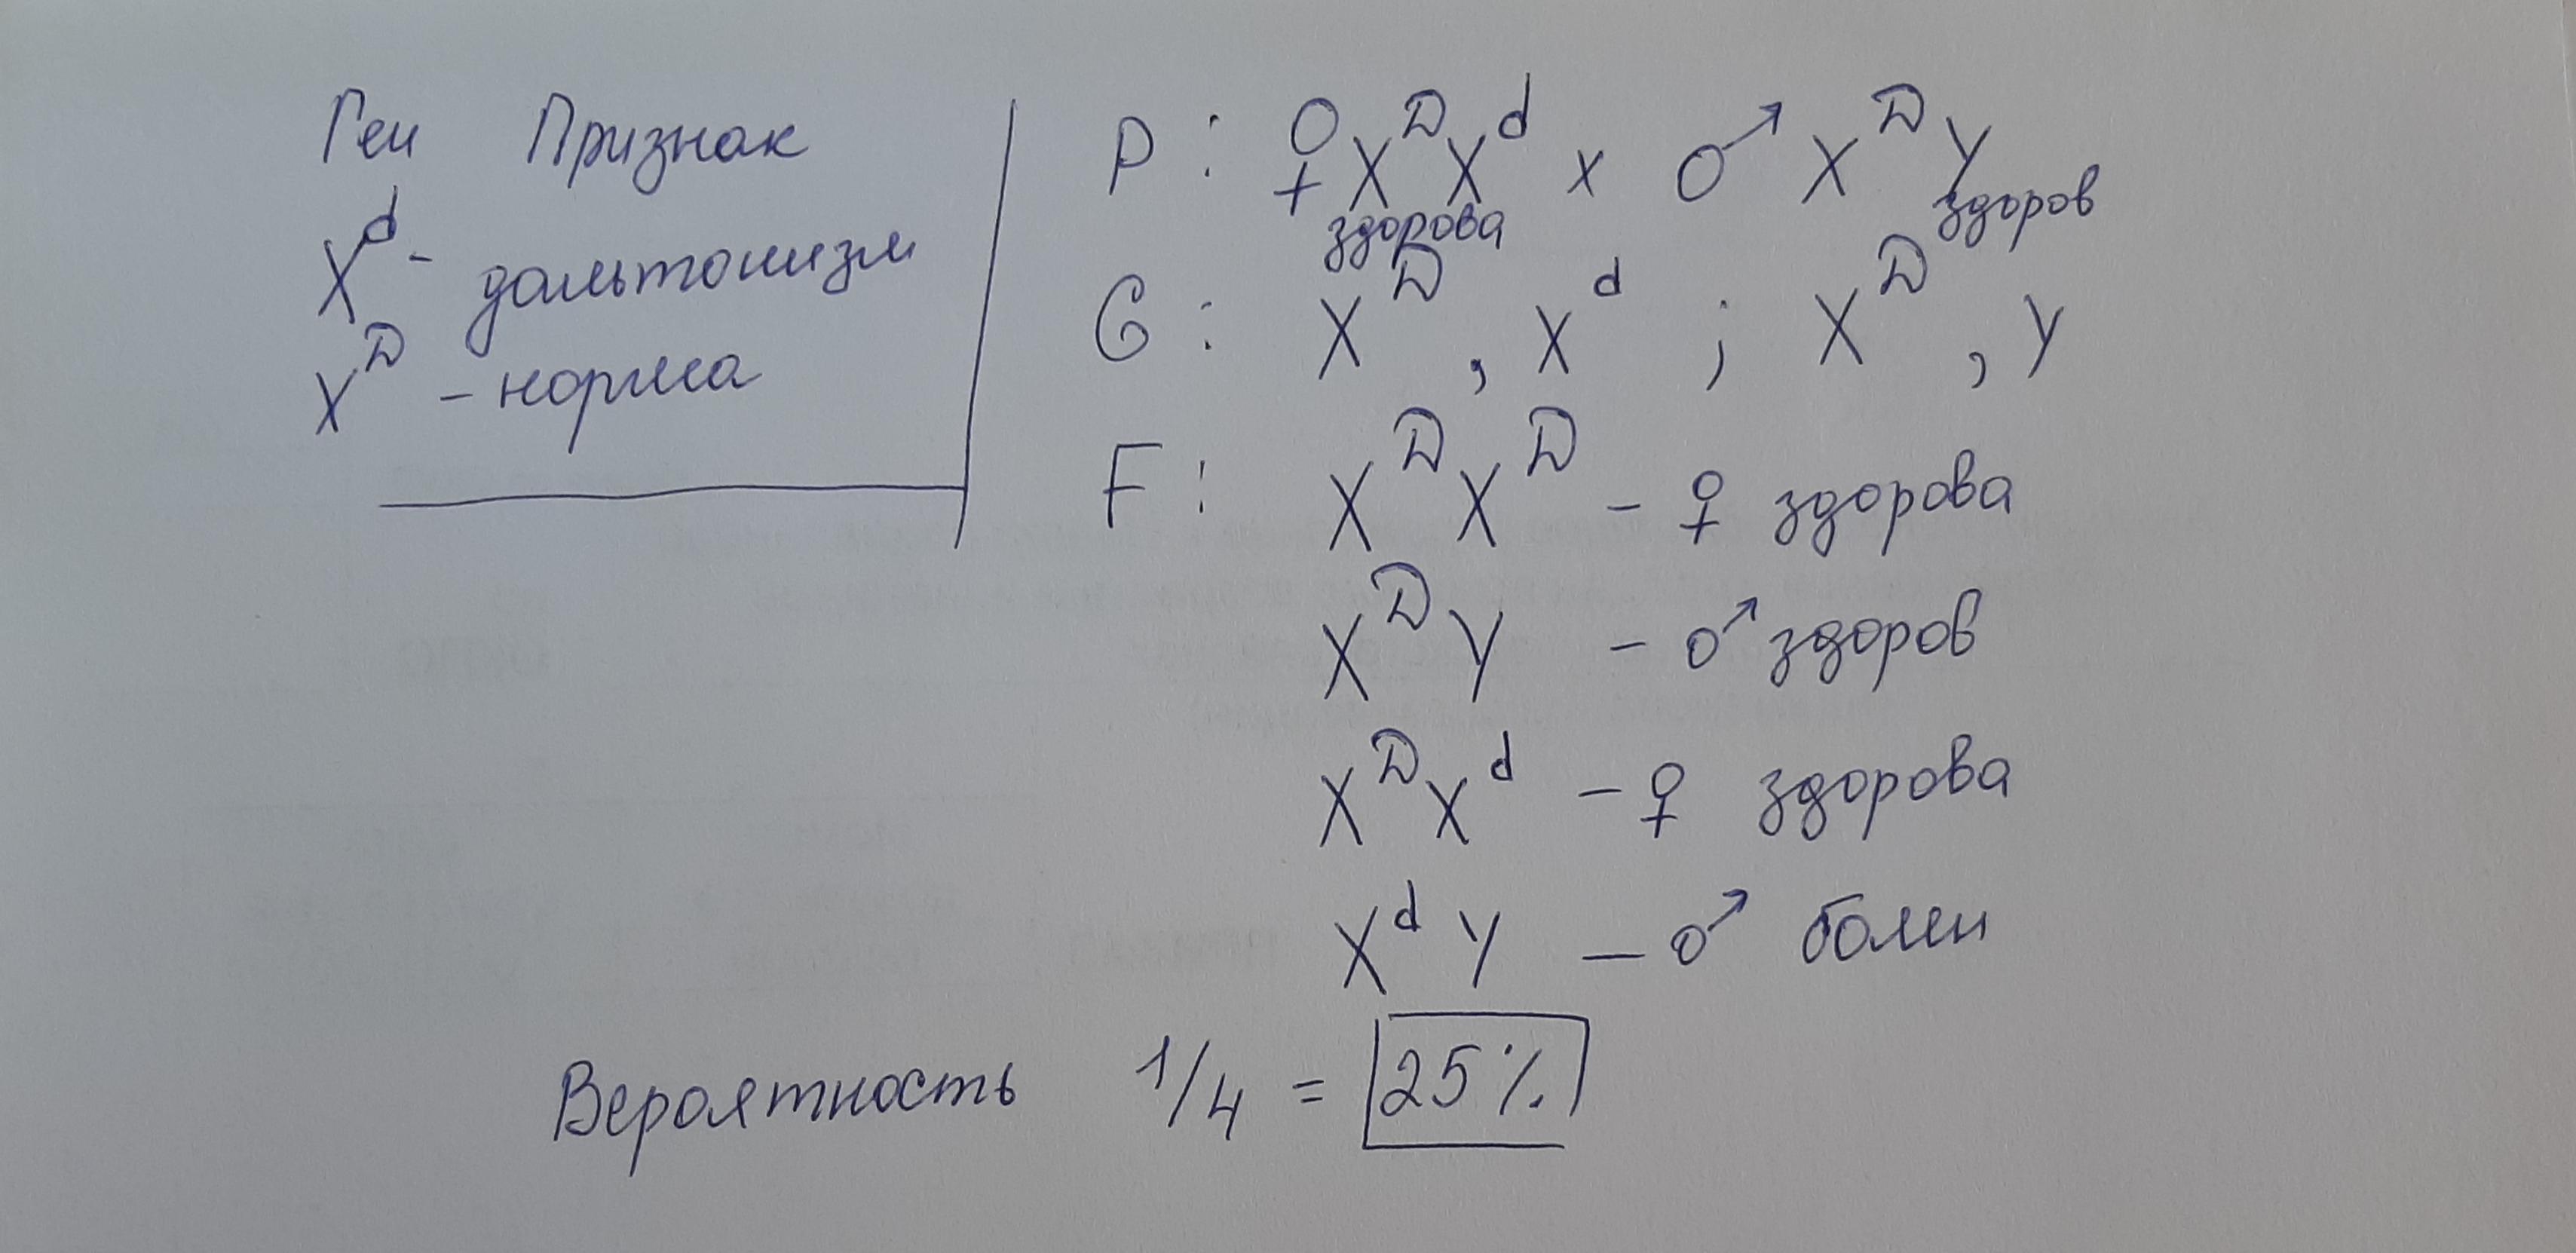 Ген Признак
X^d - дальтонизм
X^D - норма
P : ♀ X^D X^d x ♂ X^D Y
здорова здоров
G : X^D , X^d ; X^D , Y
F : X^D X^D - ♀ здорова
X^D Y - ♂ здоров
X^D X^d - ♀ здорова
X^d Y - ♂ болен
Вероятность 1/4 = 25%